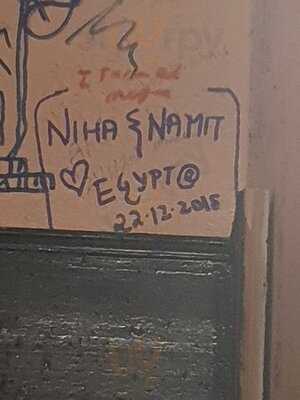 NIHA & NAMIT
♡ EGYPT@
22.12.2015